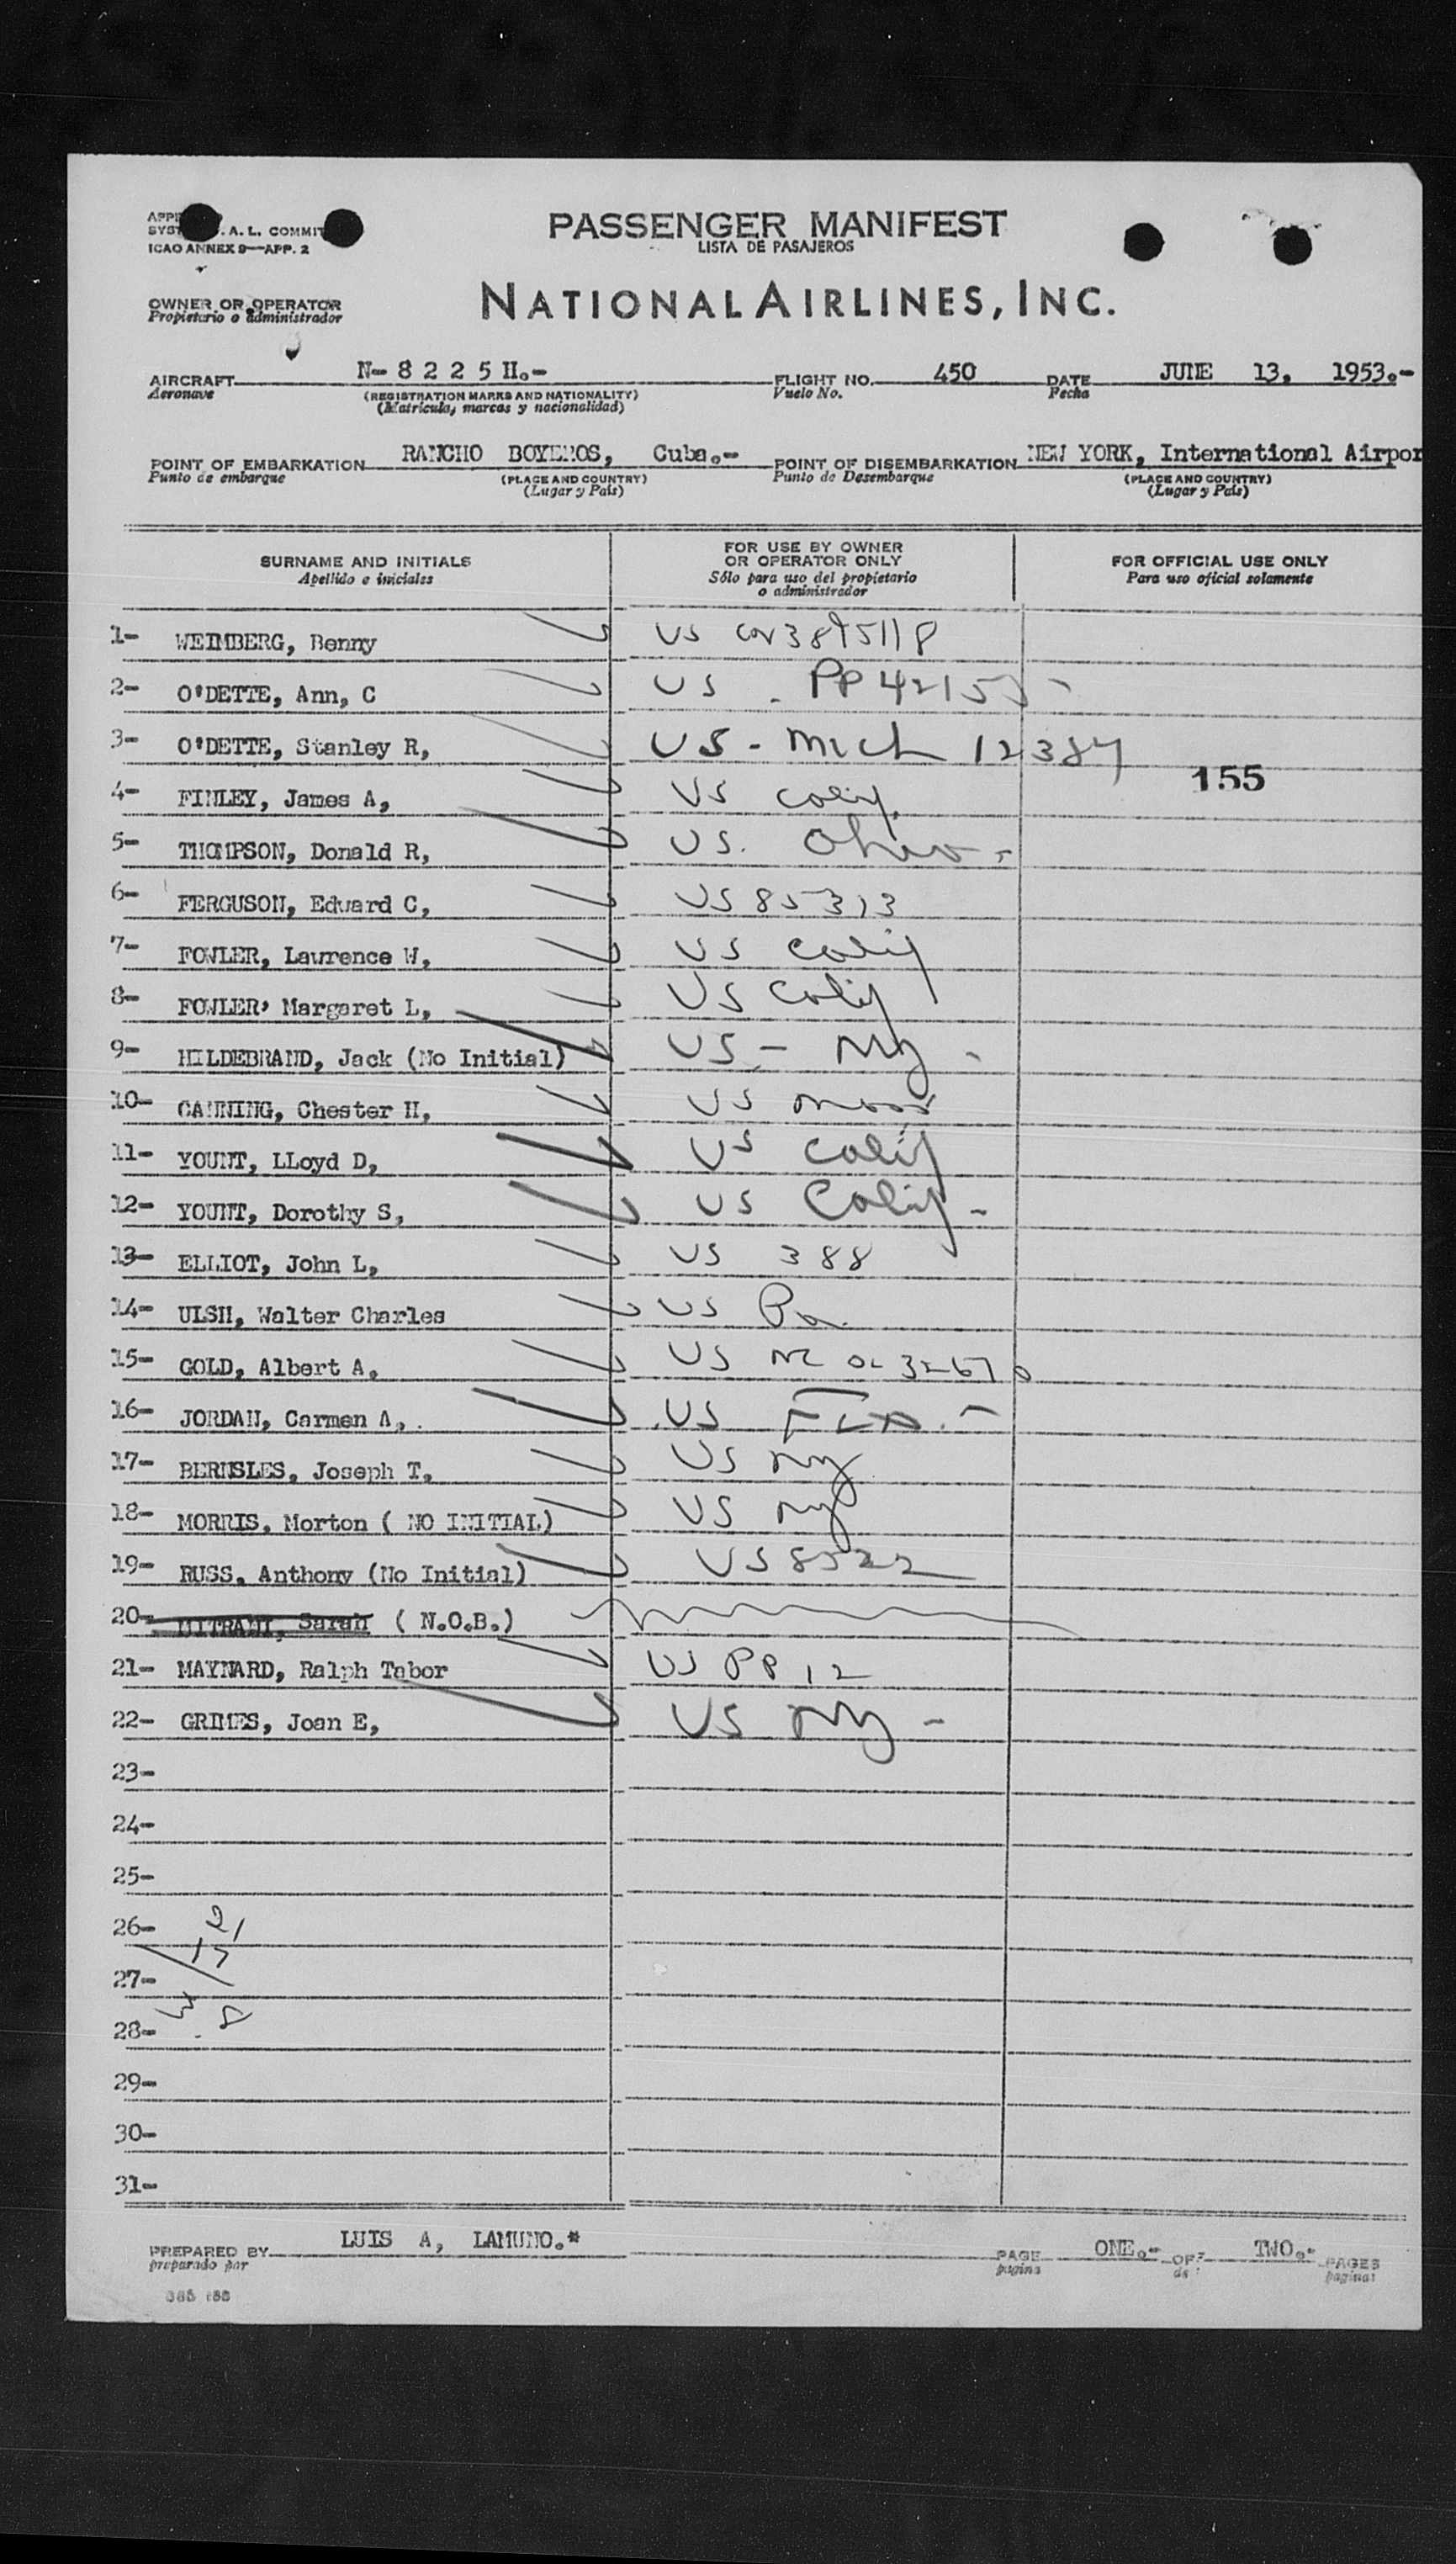 PASSENGER MANIFEST
LISTA DE PASAJEROS
A. L.
ICAO ANNEX 9—APP. 2
OWNER OR OPERATOR
Propietario o administrador
NATIONAL AIRLINES, INC.
AIRCRAFT N- 8 2 2 5 H.- FLIGHT NO. 450 DATE JUNE 13, 1953.-
Aeronave (REGISTRATION MARKS AND NATIONALITY) Vuelo No. Fecha
(Matricula, marcas y nacionalidad)
POINT OF EMBARKATION RANCHO BOYEROS, Cuba.- POINT OF DISEMBARKATION NEW YORK, International Airpor
Punto de embarque (PLACE AND COUNTRY) Punto de Desembarque (PLACE AND COUNTRY)
(Lugar y País) (Lugar y País)
SURNAME AND INITIALS FOR USE BY OWNER OR OPERATOR ONLY FOR OFFICIAL USE ONLY
Apellido e iniciales Sólo para uso del propietario o administrador Para uso oficial solamente
1- WEIMBERG, Benny US
2- O'DETTE, Ann, C US - PP
3- O'DETTE, Stanley R, US - Mich 12387
155
4- FINLEY, James A, US Calif.
5- THOMPSON, Donald R, US. Ohio -
6- FERGUSON, Edward C, US 85313
7- FOWLER, Lawrence W, US Calif
8- FOWLER, Margaret L, US Calif
9- HILDEBRAND, Jack (No Initial) US - NY -
10- CANNING, Chester H, US Mass
11- YOUNT, LLoyd D, US Calif
12- YOUNT, Dorothy S, US Calif -
13- ELLIOT, John L, US 388
14- ULSH, Walter Charles US Pa
15- GOLD, Albert A, US
16- JORDAN, Carmen A, . US FLA. -
17- BERNSLES, Joseph T, US NY
18- MORRIS, Morton ( NO INITIAL) US NY
19- RUSS, Anthony (No Initial) US 8522
20- MITRANI, Sarah ( N.O.B.)
21- MAYNARD, Ralph Tabor US PP 12
22- GRIMES, Joan E, US NY -
23-
24-
25-
26- 21
17
27-
38
28-
29-
30-
31-
PREPARED BY LUIS A, LAMUNO.* PAGE ONE.- OF TWO.- PAGES
preparado por pagina de paginas